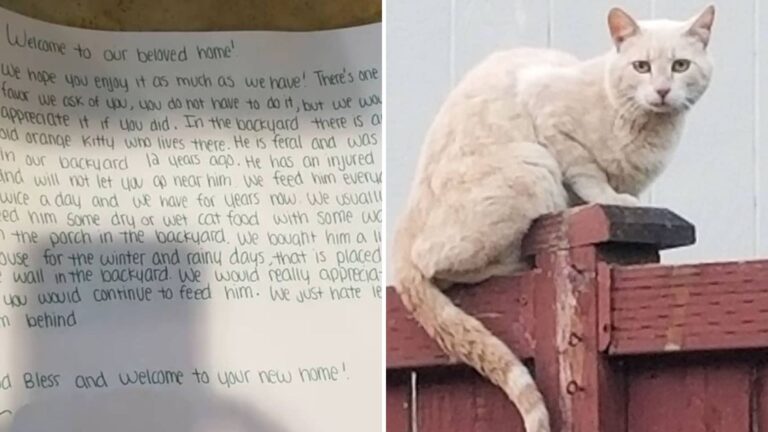 Welcome to our beloved home!
We hope you enjoy it as much as we have! There's one
favor we ask of you, you do not have to do it, but we wou
appreciate it if you did. In the backyard there is a
old orange kitty who lives there. He is feral and was
in our backyard 12 years ago. He has an injured
and will not let you go near him. We feed him every
twice a day and we have for years now. We usuall
eed him some dry or wet cat food with some wa
the porch in the backyard. We bought him a li
ouse for the winter and rainy days, that is placed
wall in the backyard. We would really apprecia
you would continue to feed him. We just hate le
m behind
d Bless and welcome to your new home!